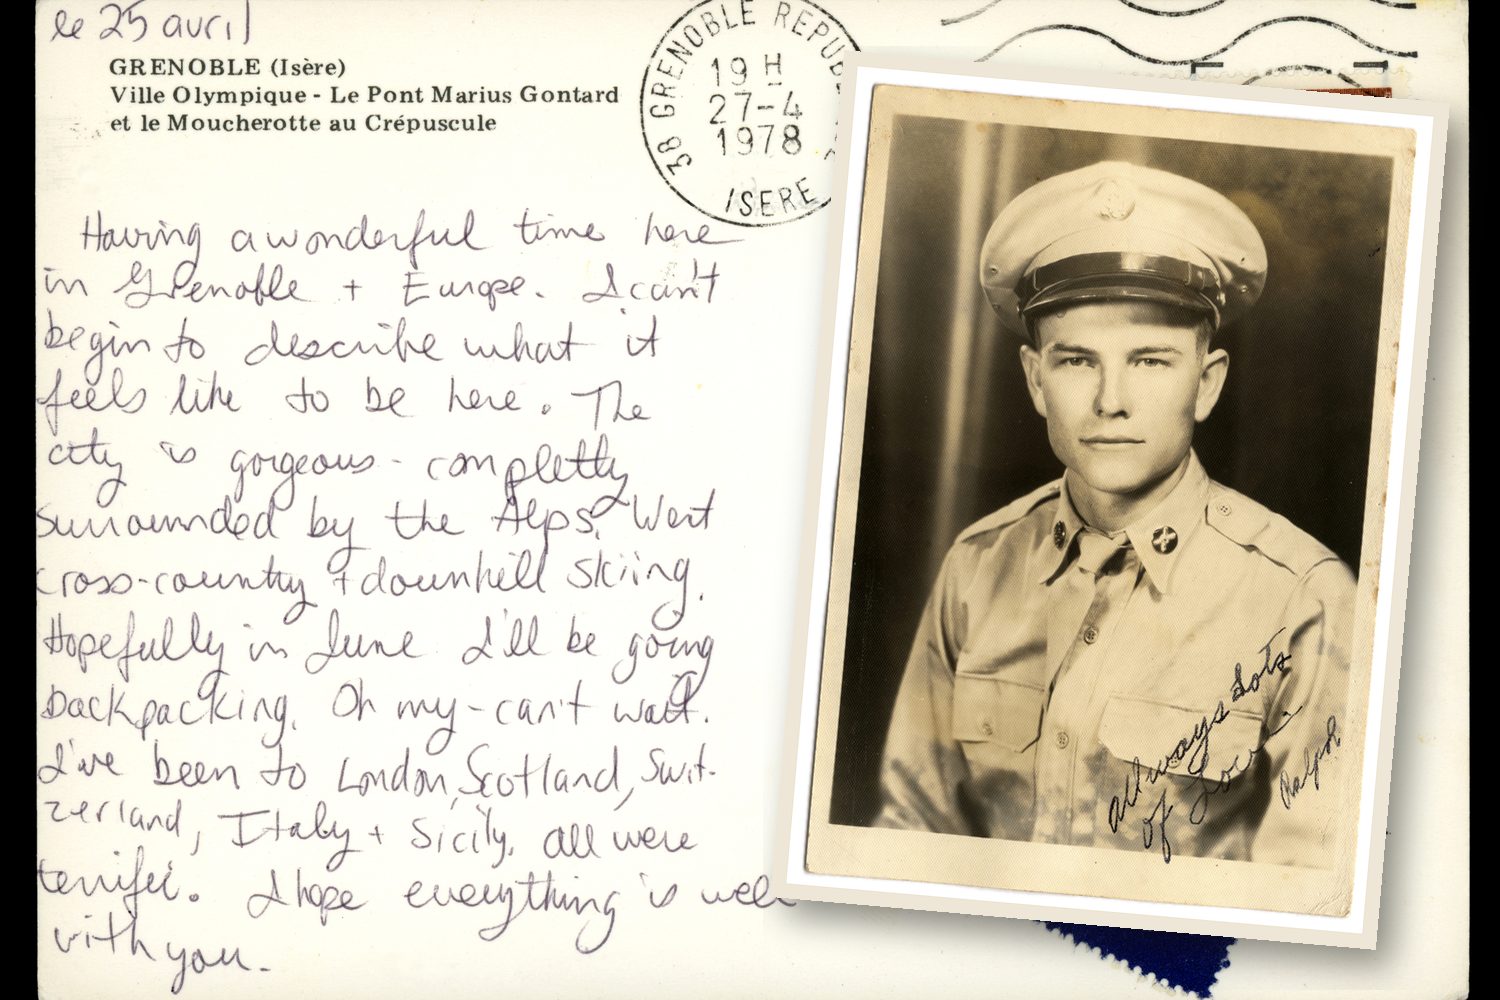 le 25 avril
GRENOBLE (Isère)
Ville Olympique - Le Pont Marius Gontard
et le Moucherotte au Crépuscule
38 GRENOBLE REPUB
19 H
27-4
1978
ISERE
Having a wonderful time here
in Grenoble + Europe. I can't
begin to describe what it
feels like to be here. The
city is gorgeous - completly
surrounded by the Alps. Went
cross-country + downhill skiing.
Hopefully in June I'll be going
backpacking. Oh my - can't wait.
I've been to London, Scotland, Swit-
zerland, Italy + Sicily. All were
terrific. I hope everything is well
with you.
Allways Lots
of Love
Ralph